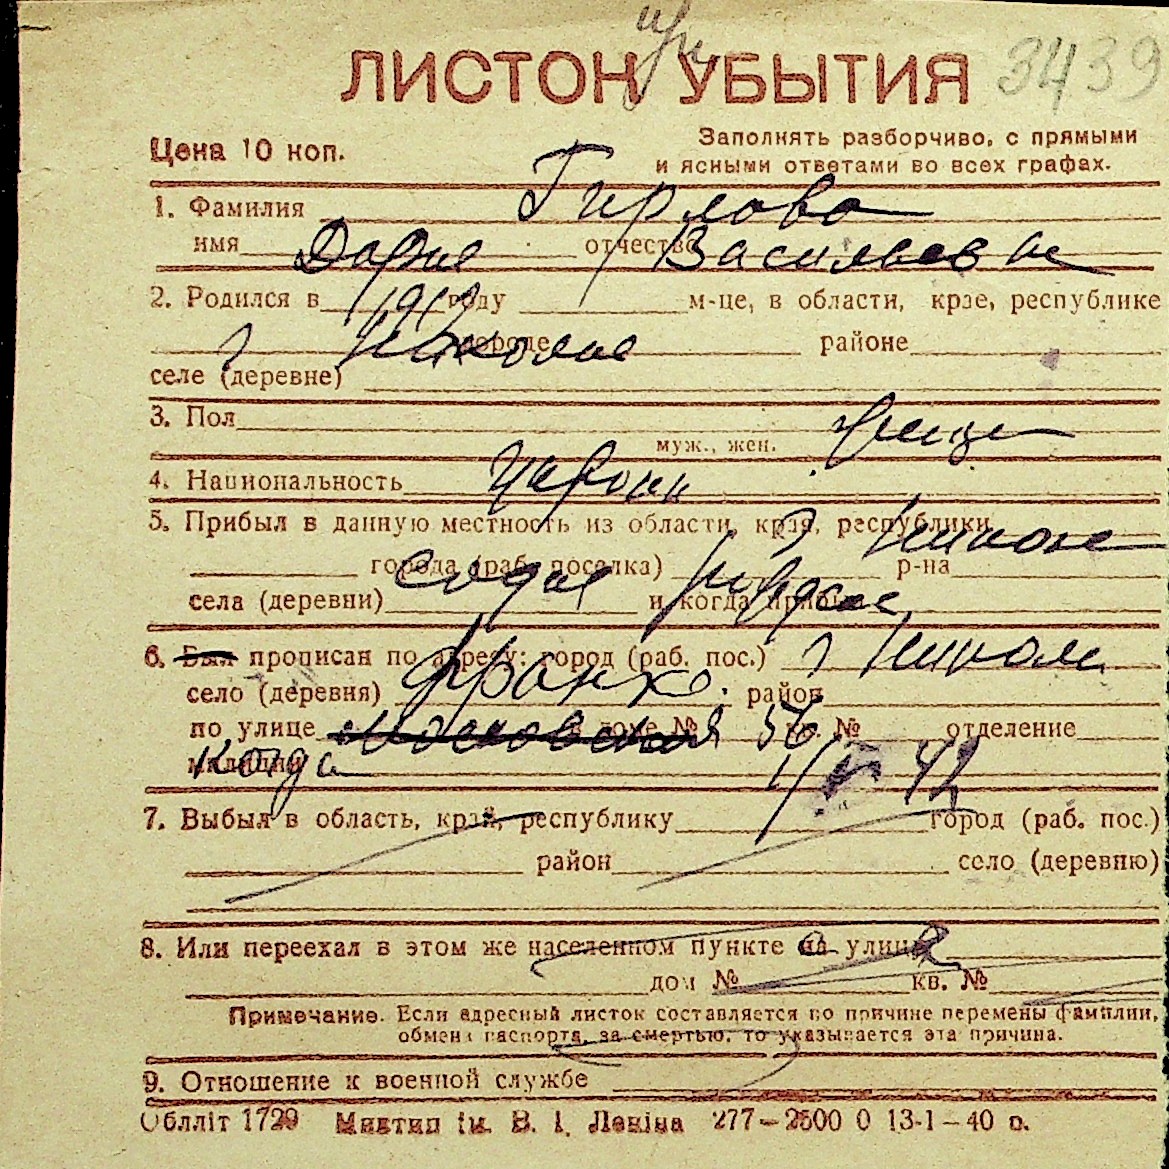 при
ЛИСТОК УБЫТИЯ 3439
Цена 10 коп. Заполнять разборчиво, с прямыми
и ясными ответами во всех графах.
1. Фамилия Гирлова
имя Дария отчество Васильевна
2. Родился в 1912 году м-це, в области, крае, республике
г городе районе
селе (деревне)
3. Пол муж., жен.
4. Национальность
5. Прибыл в данную местность из области, края, республики г
города (раб. поселка) р-на
села (деревни) и когда прибыл
6. Был прописан по адресу: город (раб. пос.) г
село (деревня) Франко район
по улице Московская доме № 56 кв. № отделение
милиции когда 42
7. Выбыл в область, край, республику город (раб. пос.)
район село (деревню)
8. Или переехал в этом же населенном пункте на улицу
дом № кв. №
Примечание. Если адресный листок составляется по причине перемены фамилии,
обмена паспорта, за смертью, то указывается эта причина.
9. Отношение к военной службе
Облліт 1729 Миктип ім. В. І. Леніна 277—2500 0 13-1—40 р.